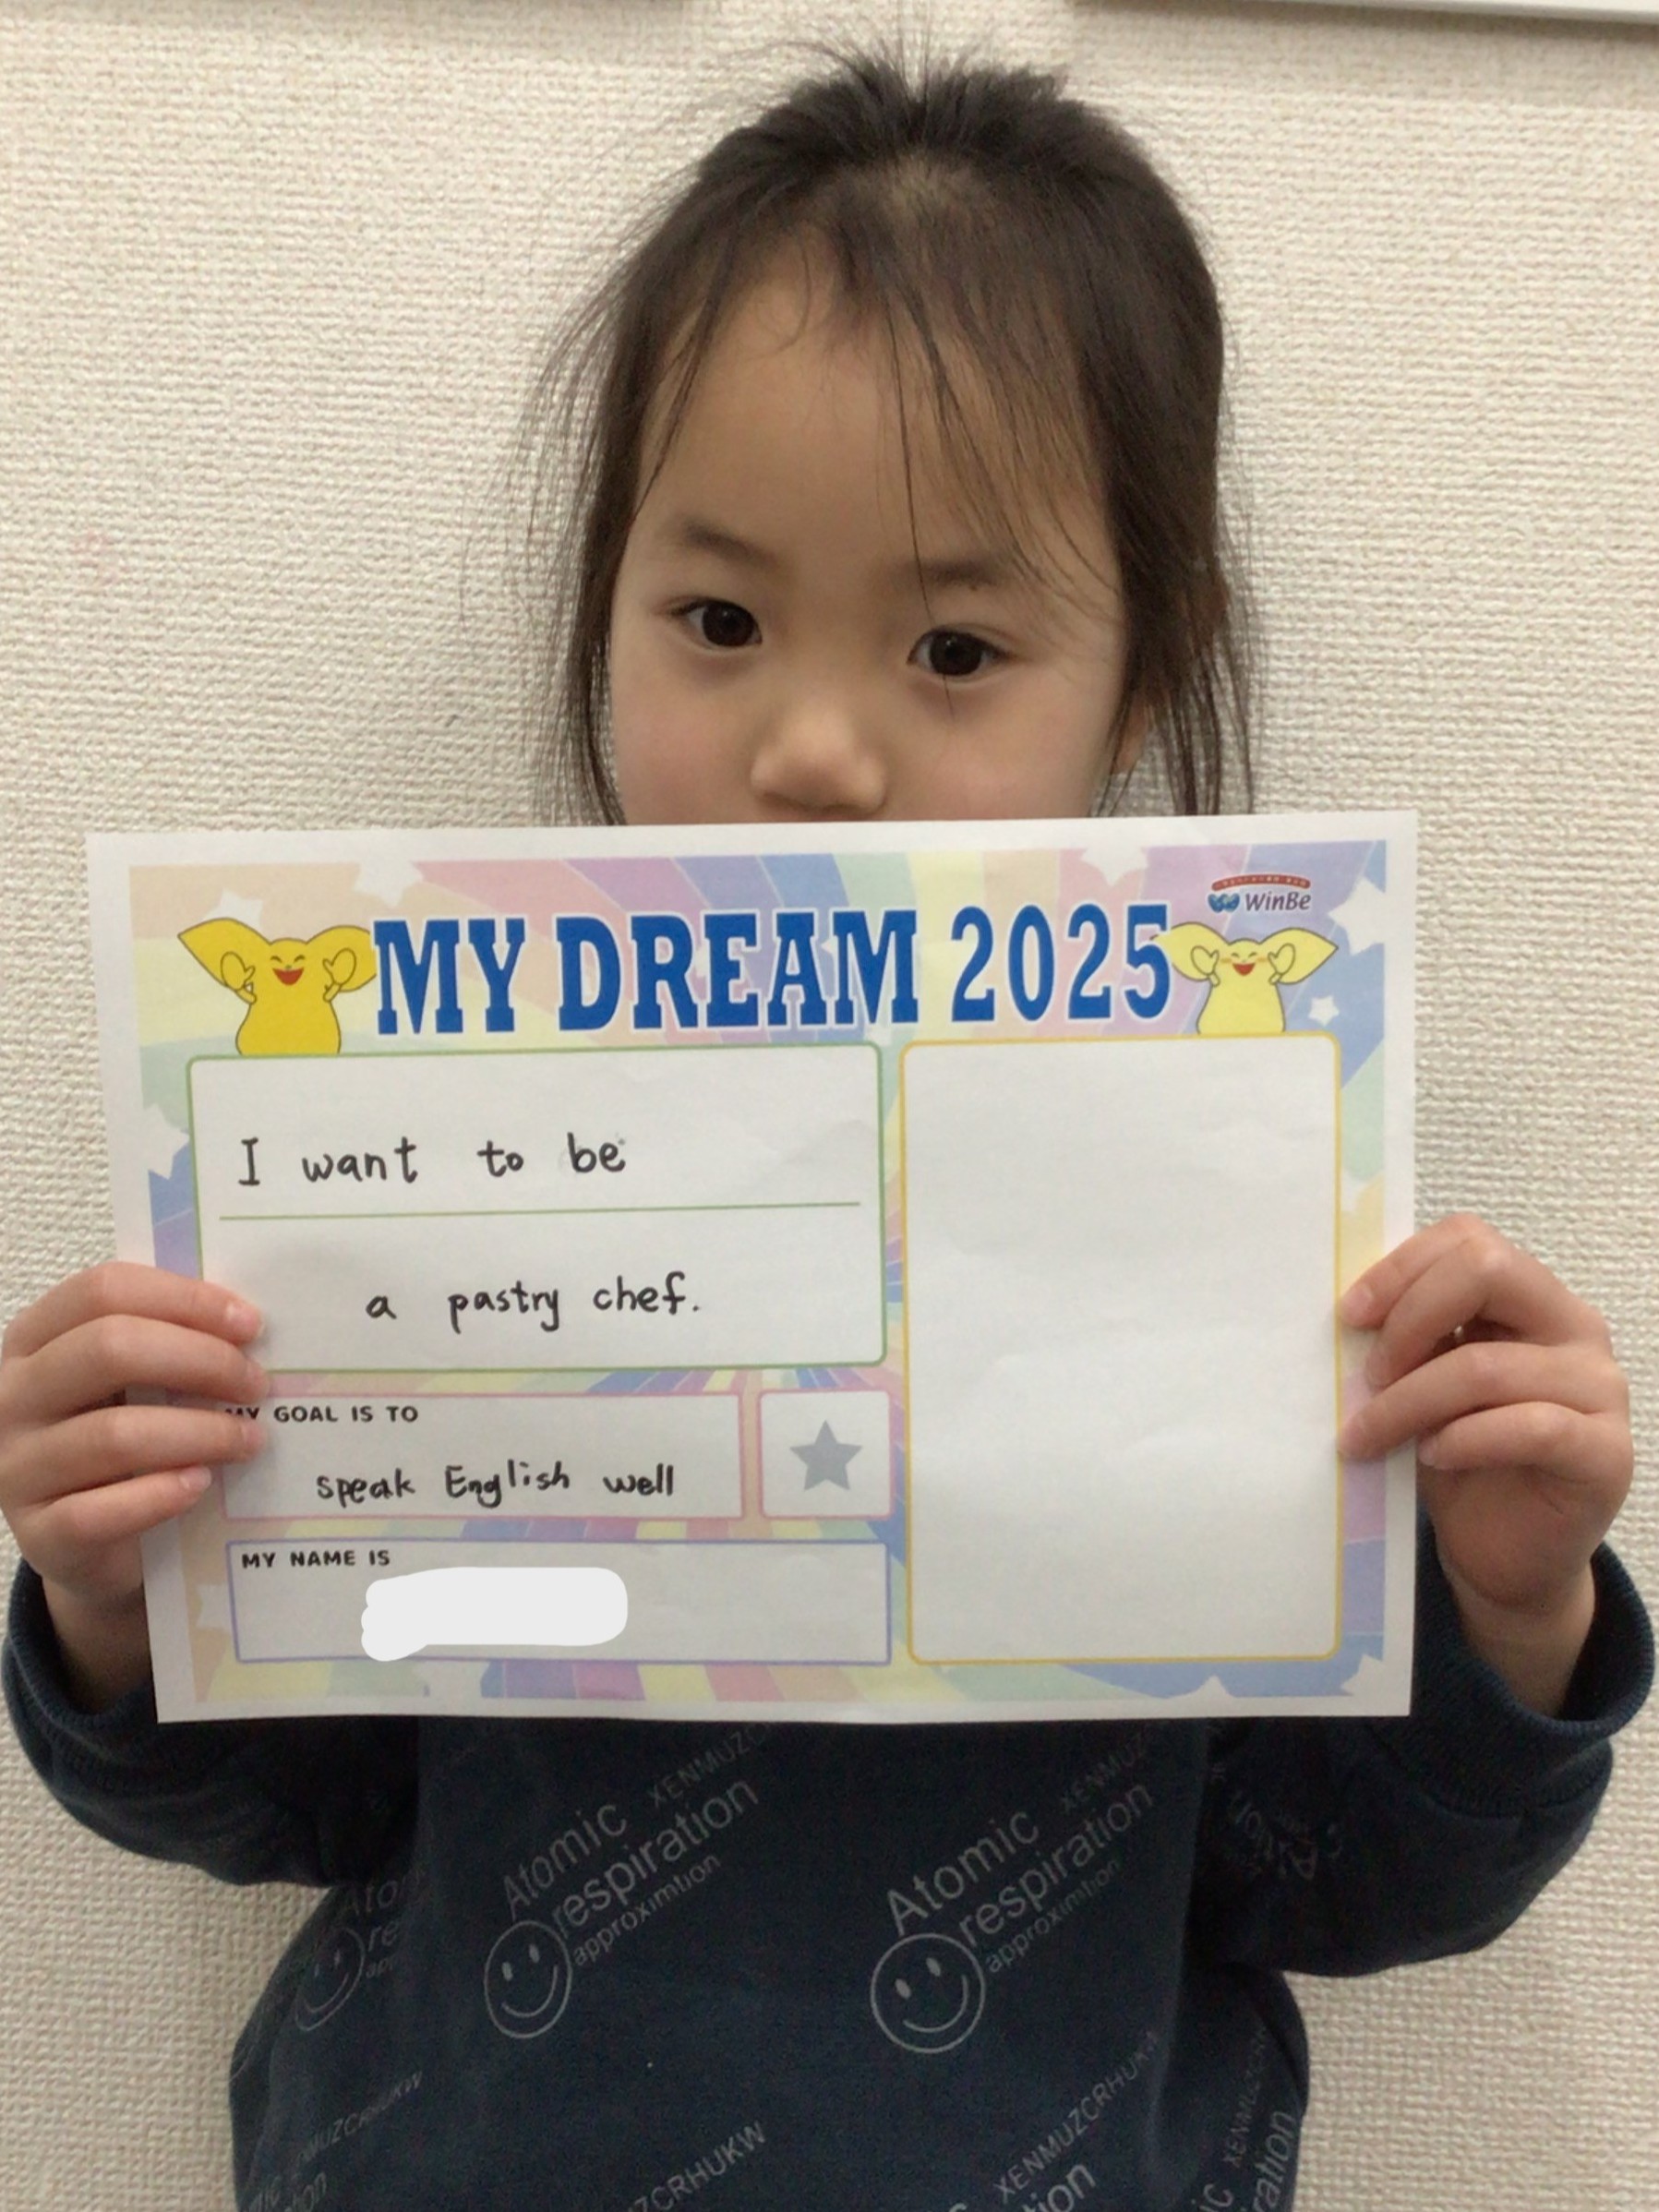 WinBe
MY DREAM 2025
I want to be
a pastry chef.
GOAL IS TO
speak English well
MY NAME IS
XENMUZ
XENMUZ
Atomic
respiration
approximtion
Atomic
respiration
approximtion
Ato
re
XENMUZCRHUKW
XENMUZCRH
ration